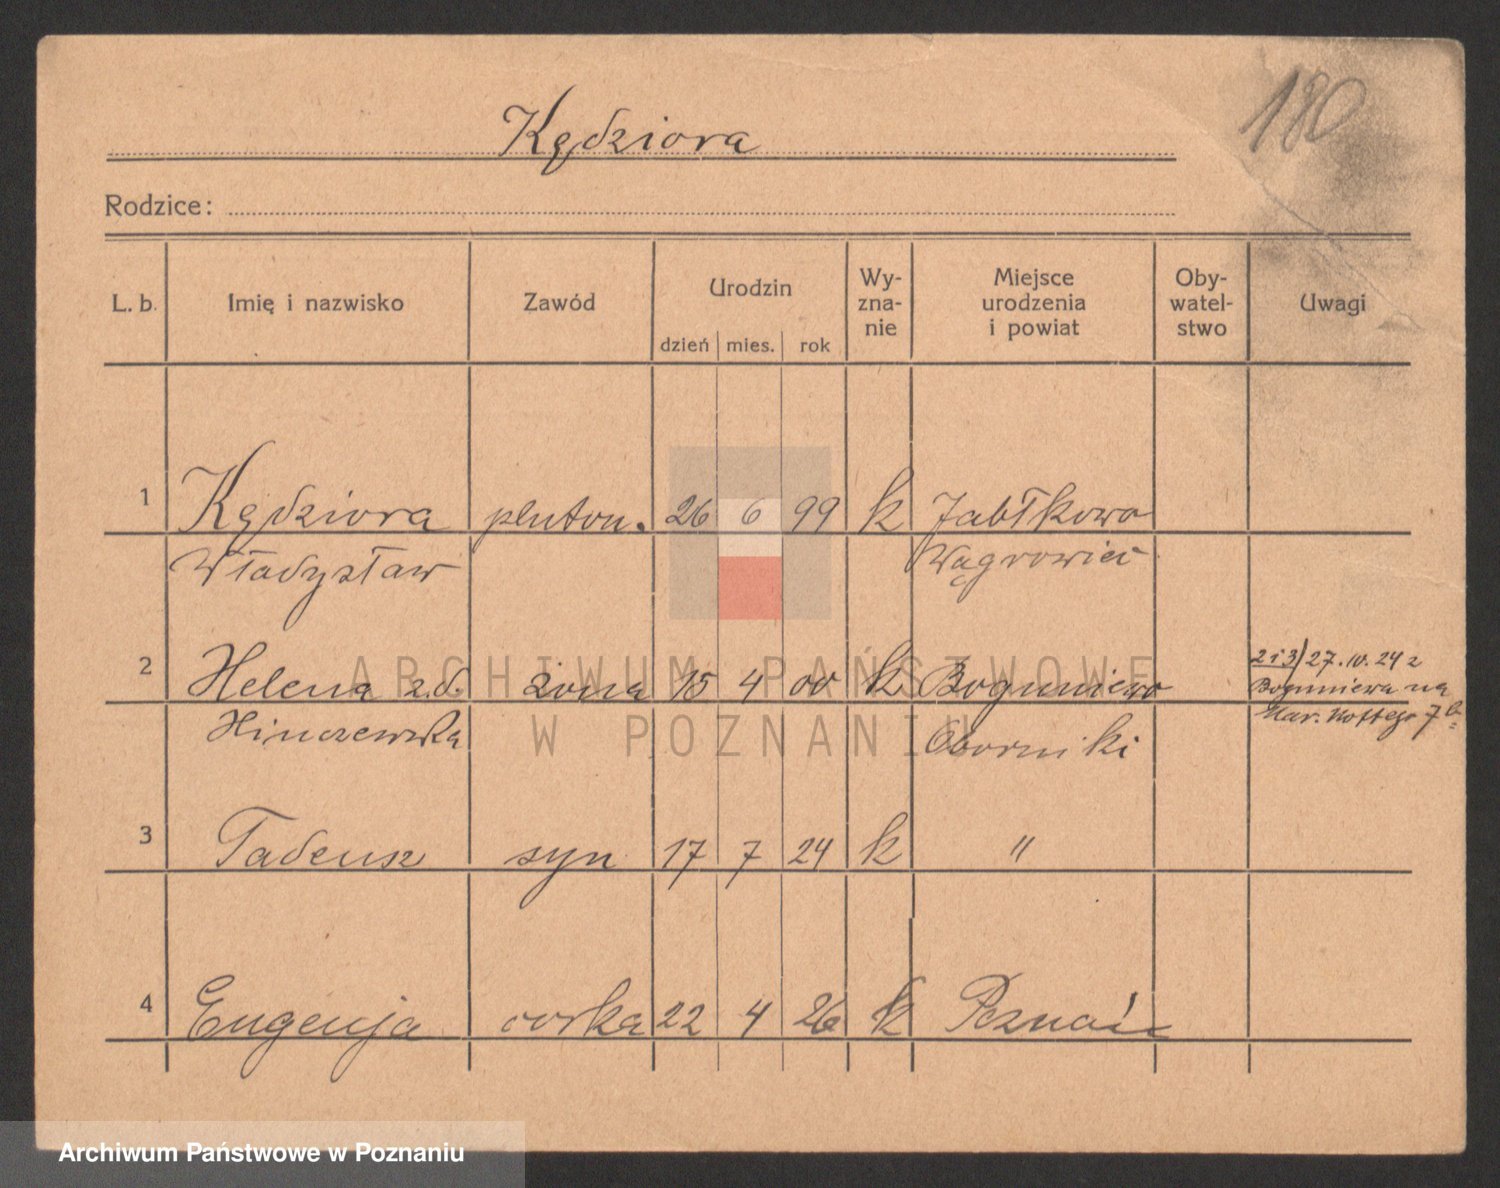 180
Kędziora
Rodzice:
L. b. Imię i nazwisko Zawód Urodzin Wy-zna-nie Miejsce urodzenia i powiat Oby-watel-stwo Uwagi
dzień mies. rok
1 Kędziora pluton. 26 6 99 k Jabłkowo
Władysław Wągrowiec
2 Helena z.d. żona 15 4 00 k Boguniewo
Hinczewska Oborniki
2 i 3/ 27.10.24 z
Boguniewa na
7b
3 Tadeusz syn 17 7 24 k "
4 Eugenja corka 22 4 26 k Poznań
ARCHIWUM PAŃSTWOWE
W POZNANIU
Archiwum Państwowe w Poznaniu